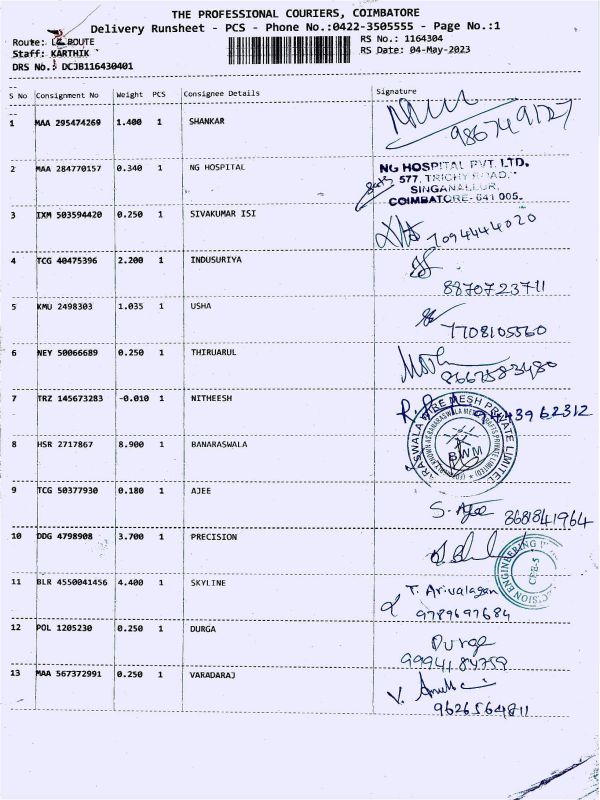 THE PROFESSIONAL COURIERS, COIMBATORE
Delivery Runsheet - PCS - Phone No.:0422-3505555 - Page No.:1
Route: ROUTE RS No.: 1164304
Staff: KARTHIK RS Date: 04-May-2023
DRS No.: DCJB116430401
S No Consignment No Weight PCS Consignee Details Signature
1 MAA 295474269 1.400 1 SHANKAR
2 MAA 284770157 0.340 1 NG HOSPITAL
NG HOSPITAL PVT. LTD.
577, TRICHY ROAD,
SINGANALLUR,
COIMBATORE- 641 005.
3 IXM 503594420 0.250 1 SIVAKUMAR ISI
7094444020
4 TCG 40475396 2.200 1 INDUSURIYA
8870723711
5 KMU 2498303 1.035 1 USHA
7708105560
6 NEY 50066689 0.250 1 THIRUARUL
8667583480
7 TRZ 145673283 -0.010 1 NITHEESH
9443962312
8 HSR 2717867 8.900 1 BANARASWALA
BWM
9 TCG 50377930 0.180 1 AJEE
S. Ajee 8681841964
10 DDG 4798908 3.700 1 PRECISION
11 BLR 4550041456 4.400 1 SKYLINE
T. Arivalagan
9789697684
12 POL 1205230 0.250 1 DURGA
Durga
9994184759
13 MAA 567372991 0.250 1 VARADARAJ
9626564811